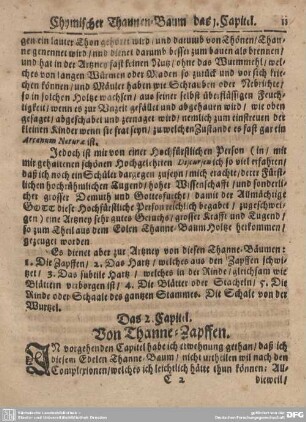 Chymischer Thannen-Baum das 1. Capitel. 11
gen ein lauter Thon gehöret wird / und darumb von Thönen / Than-
ne genennet wird / und dienet darumb besser zum bauen als brennen /
und hat in der Artzney fast keinen Nutz / ohne das Wurmmehl / wel-
ches von langen Würmen oder Maden so zurück und vor sich krie-
chen können / und Mäuler haben wie Schrauben oder Nebörige /
so in solchen Holtze wachsen / aus seiner selbst überflüssigen Feuch-
tigkeit / wenn es zur Vnzeit gefället und abgehauen wird / wie oben
gesaget / abgeschabet und zernaget wird / nemlich zum einstreuen der
kleinen Kinder wenn sie frat seyn / zu welchen Zustande es fast gar ein
Arcanum Naturæ ist.
Jedoch ist mir von einer Hoch Fürstlichen Person (in / mit
mir gehaltenen schönen Hochgelehrten Discursen ich so viel erfahren /
daß ich noch ein Schüler dargegen zu seyn / mich erachte / derer Fürst-
lichen hochrühmlichen Tugend / hoher Wissenschafft / und sonderlich
grosser Demuth und Gottesfurcht / damit der Allmächtige
GOtt diese Hoch Fürstliche Person reichlich begabet / zugeschwei-
gen) eine Artzney sehr gutes Geruchs / grosser Krafft und Tugend /
so zum Theil aus dem Edlen Thanne-Baum. Holtze herkommen /
gezeuget worden
Es dienet aber zur Artzney von diesen Thanne-Bäumen:
1. Die Zapffen / 2. Das Hartz / welches aus den Zapffen schwi-
tzet / 3. Das subtile Hartz / welches in der Rinde / gleichsam wie
Blättern verborgen ist / 4. Die Blätter oder Stacheln / 5. Die
Rinde oder Schaale des gantzen Stammes. Die Schale von der
Wurtzel.
Das 2. Capitel.
Von Thanne-Zapffen.
IN vorgehenden Capitel habe ich erwehnung gethan / daß ich
diesem Edelen Thanne-Baum / nicht urtheilen wil nach den
Complexionen / welches ich leichtlich hätte thun können: All-
C 2 dieweil /